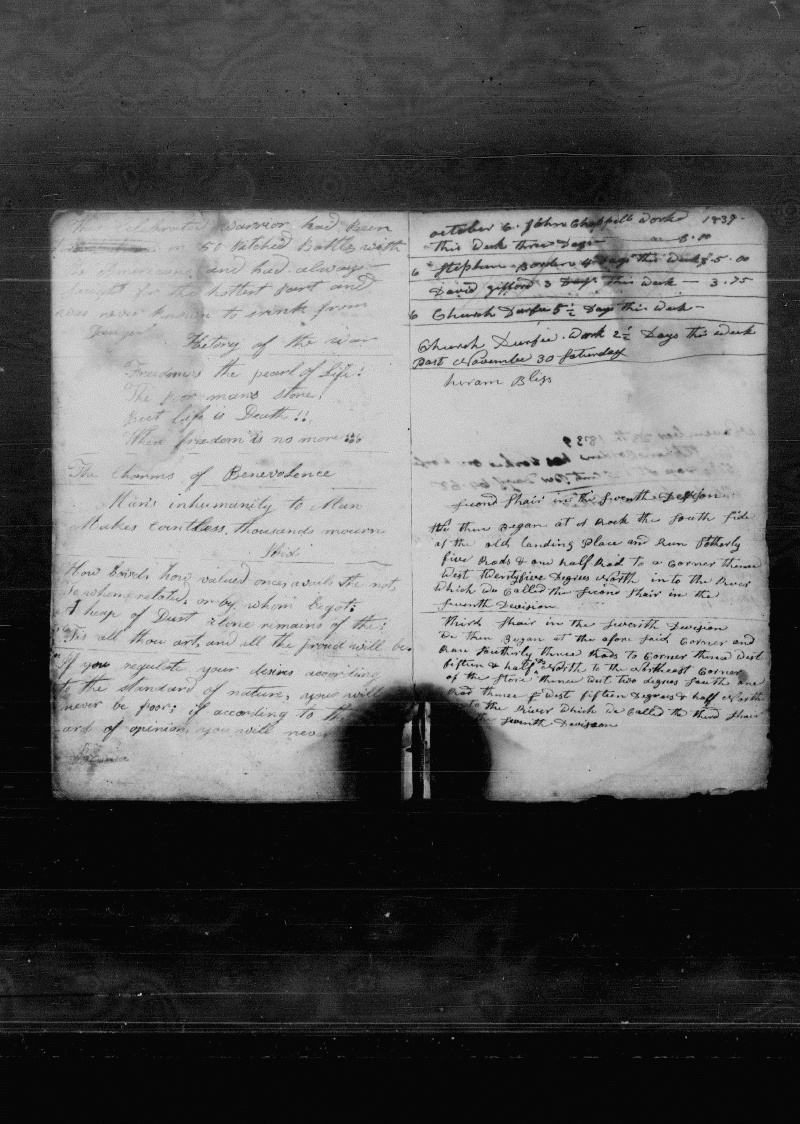 celebrated warrior had been
in 50 Pitched Battles with
the Americans, and had always
fought for the hottest part and
was never known to srink from
Danger
History of the war
Freedom is the pearl of Life!
The poor mans store!
But Life is Death!!
When freedom is no more
The Charms of Benevolence
Man's inhumanity to Man
Makes countless, thousands mourn
Ibid
How lov'd, how valued once, avails the not
To whom related, or by whom begot;
A heap of Dust alone remains of the;
'Tis all thou art, and all the proud will be.
If you regulate your desires according
to the standard of nature, you will
never be poor; if according to the
ard of opinion, you will never
October 6. John Chappell Worked 1839.
this Week three Days 3.00
6 Stephen Borden 4 Days this Week $ 5.00
David gifford 3 Days this Week — 3.75
6 Church Durfee 5 ½ Days this Week —
Church Durfee. Work 2 ½ Days this week
Past November 30 Saturday
hiram Bliss
Second Shair in the Seventh Devision
We then Began at a Rock the South side
of the old landing Place and Run Sotherly
five Rods & one half Rod to a Corner thence
West Twentyfive Degrees North in to the River
Which we Called the Second Shair in the
Seventh Devision
Third Shair in the Seventh Devision
We then Began at the afore said Corner and
Run Southerly three Rods to Corner thence West
fifteen & half North to the Northeast Corner
of the Store thence West two degrees South one
Rod thence West fifteen Degrees & half North
to the River Which we Called the third Shair
the Seventh Devision